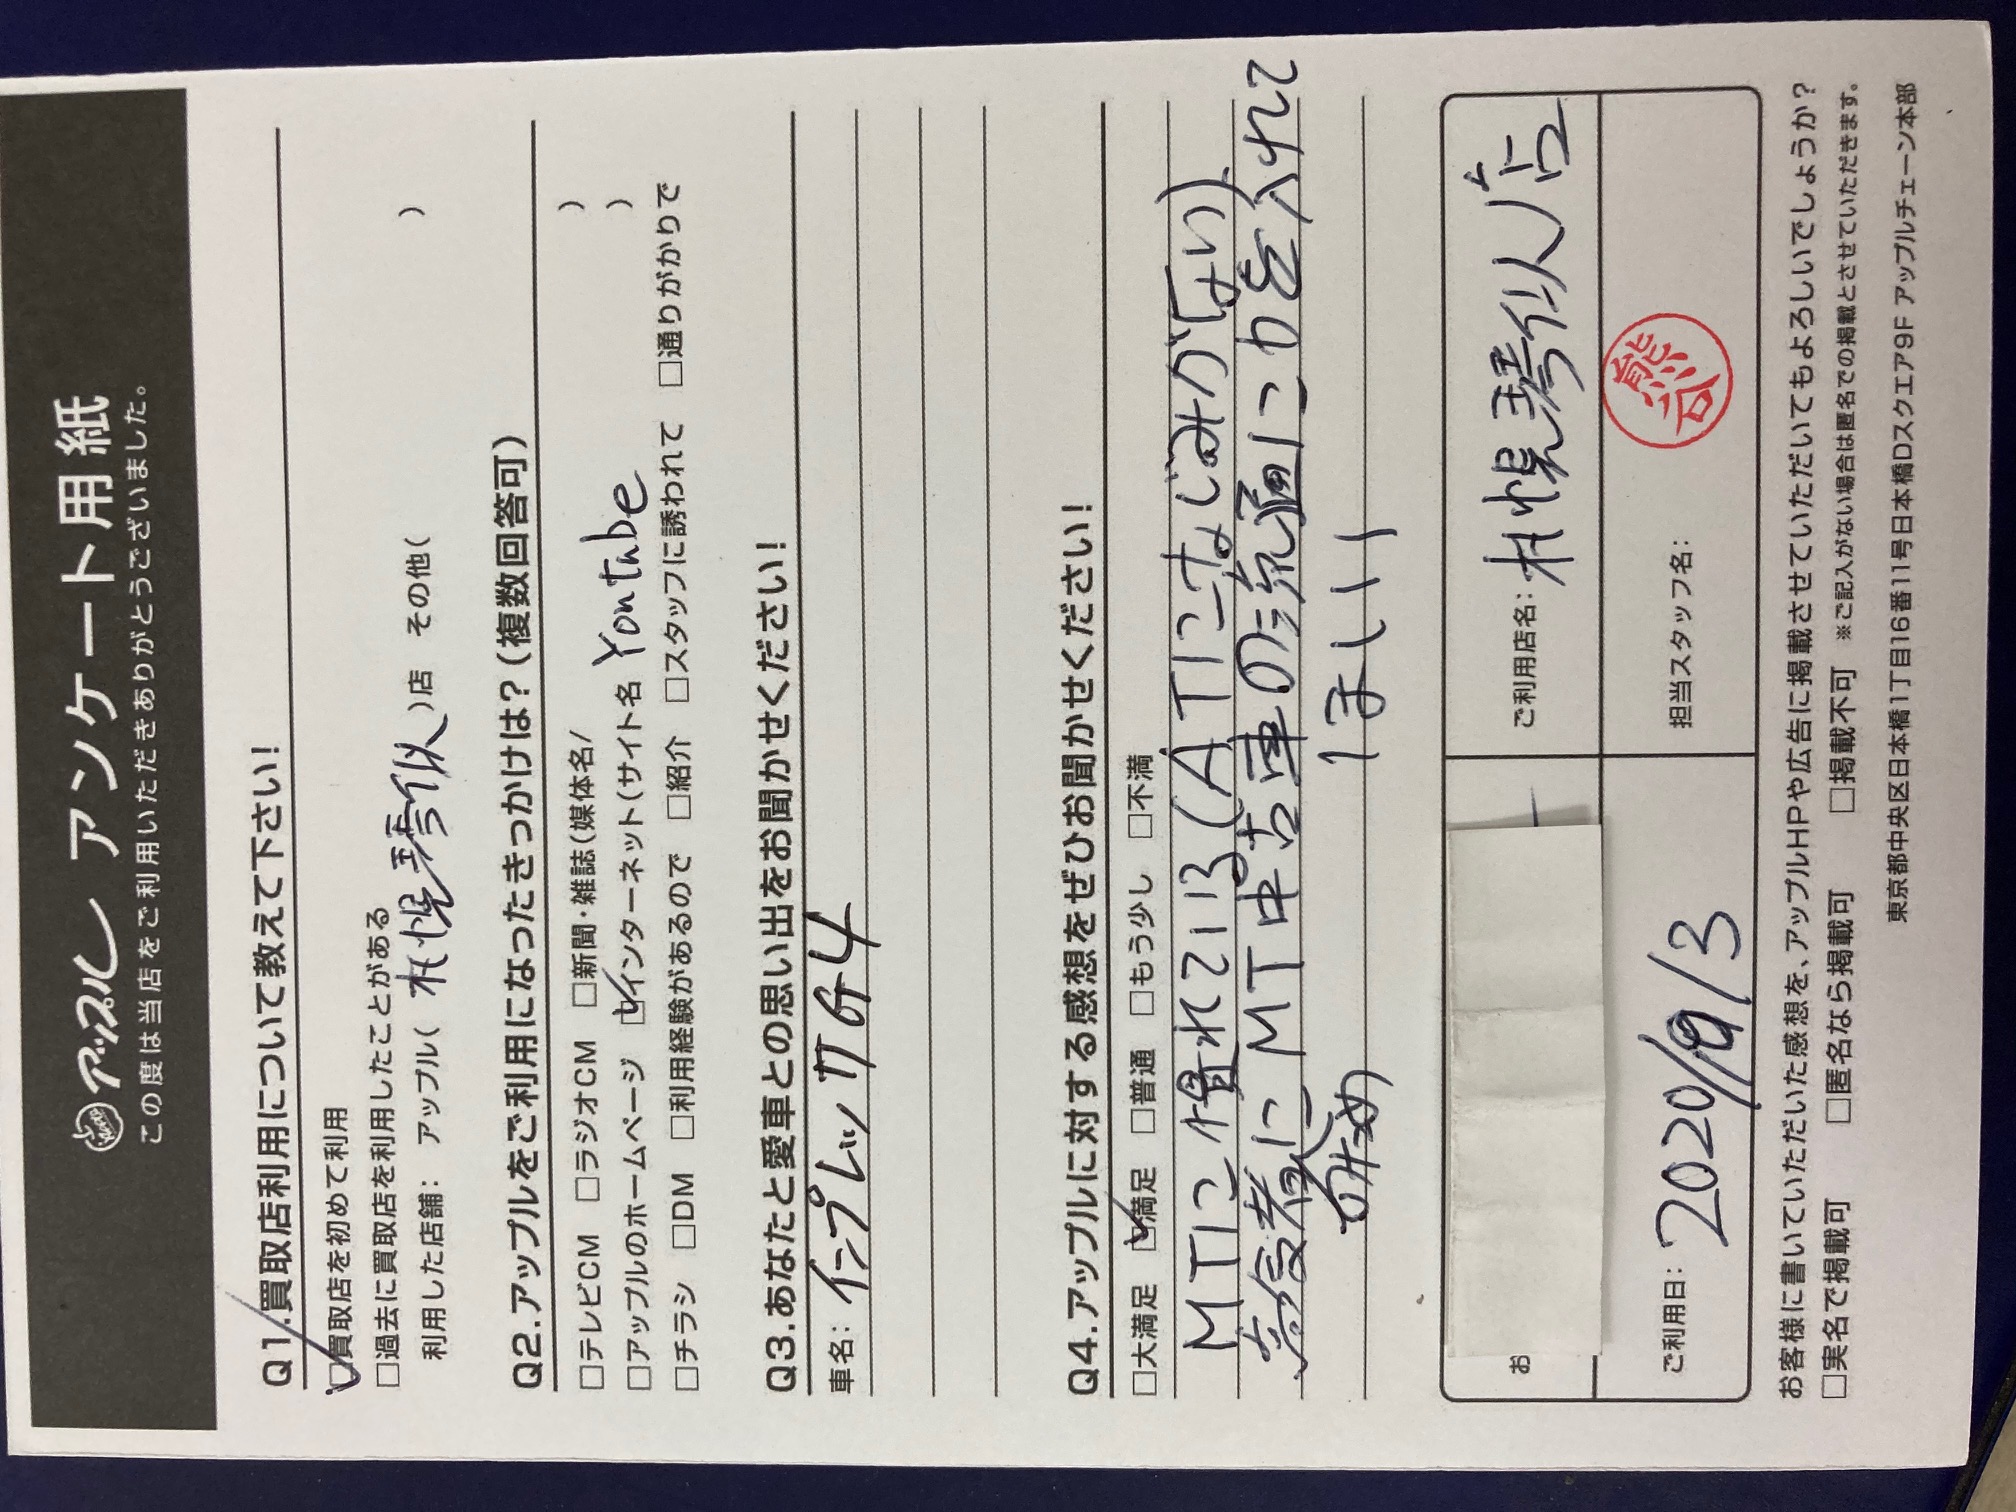 アップル アンケート用紙
この度は当店をご利用いただきありがとうございました。
Q1.買取店利用について教えて下さい!
□買取店を初めて利用
□過去に買取店を利用したことがある
利用した店舗: アップル( 札幌琴似 )店 その他( )
Q2.アップルをご利用になったきっかけは?(複数回答可)
□テレビCM □ラジオCM □新聞・雑誌(媒体名/ )
□アップルのホームページ □インターネット(サイト名 Youtube )
□チラシ □DM □利用経験があるので □紹介 □スタッフに誘われて □通りがかりで
Q3.あなたと愛車との思い出をお聞かせください!
車名: インプレッサG4
Q4.アップルに対する感想をぜひお聞かせください!
□大満足 □満足 □普通 □もう少し □不満
MTに慣れている(ATになじみがない)
高齢者にMT中古車の流通に力を入れて
ほしい
ご利用店名: 札幌琴似店
お
担当スタッフ名: 熊谷
ご利用日: 2020/9/3
お客様に書いていただいた感想を、アップルHPや広告に掲載させていただいてもよろしいでしょうか?
□実名で掲載可 □匿名なら掲載可 □掲載不可 ※ご記入がない場合は匿名での掲載とさせていただきます。
東京都中央区日本橋1丁目16番11号日本橋Dスクエア9F アップルチェーン本部